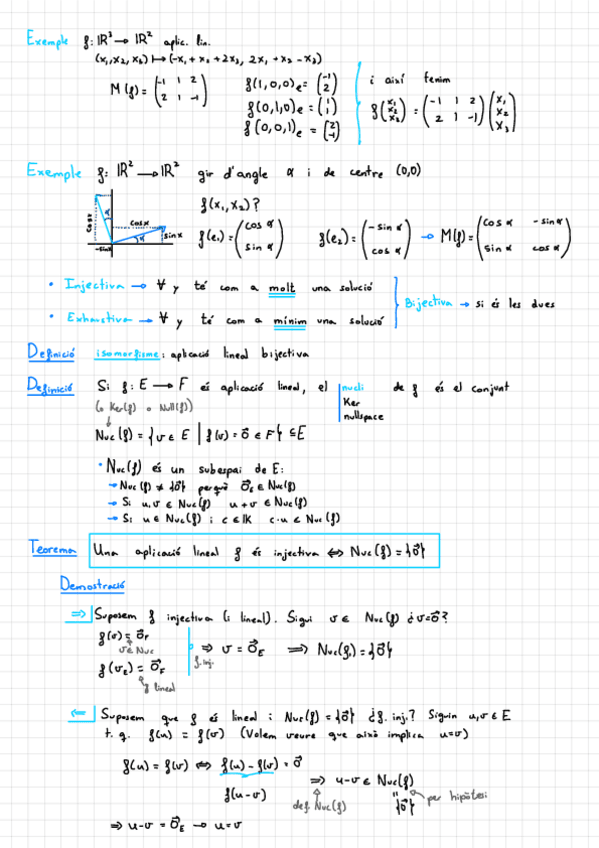 Exemple f: ℝ³ → ℝ² aplic. lin.
(x₁,x₂,x₃) ↦ (-x₁ + x₂ + 2x₃, 2x₁ + x₂ - x₃)
M(f) = (-1 1 2 / 2 1 -1) f(1,0,0)e = (-1 / 2) i així tenim
f(0,1,0)e = (1 / 1) f(x₁ / x₂ / x₃) = (-1 1 2 / 2 1 -1)(x₁ / x₂ / x₃)
f(0,0,1)e = (2 / -1)
Exemple f: ℝ² → ℝ² gir d'angle α i de centre (0,0)
f(x₁,x₂)?
cosα α cosα sinα α -sinα
f(e₁) = (cos α / sin α) f(e₂) = (-sin α / cos α) → M(f) = (cos α -sin α / sin α cos α)
• Injectiva → ∀ y té com a molt una solució
• Exhaustiva → ∀ y té com a mínim una solució
Bijectiva → si és les dues
Definició isomorfisme: aplicació lineal bijectiva
Definició Si f: E → F és aplicació lineal, el nucli de f és el conjunt
Ker
nullspace
(o Ker(f) o Null(f))
Nuc(f) = {v ∈ E | f(v) = 0⃗ ∈ F} ⊆ E
• Nuc(f) és un subespai de E:
→ Nuc(f) ≠ {∅} perquè 0⃗E ∈ Nuc(f)
→ Si u,v ∈ Nuc(f) u+v ∈ Nuc(f)
→ Si u ∈ Nuc(f) i c ∈ 𝕂 c·u ∈ Nuc(f)
Teorema Una aplicació lineal f és injectiva ⇔ Nuc(f) = {0⃗}
Demostració
⇒ Suposem f injectiva (i lineal). Sigui v ∈ Nuc(f) ¿v=0⃗?
f(v) = 0⃗F
v∈Nuc
⇒ v = 0⃗E ⇒ Nuc(f) = {0⃗}
f(0⃗E) = 0⃗F f. inj.
f lineal
⇐ Suposem que f és lineal i Nuc(f) = {0⃗} ¿f. inj.? Siguin u,v ∈ E
t. q. f(u) = f(v) (Volem veure que això implica u=v)
f(u) = f(v) ⇔ f(u) - f(v) = 0⃗
f(u-v)
⇒ u-v ∈ Nuc(f)
def. Nuc(f) " {0⃗} per hipòtesi
⇒ u-v = 0⃗E → u=v